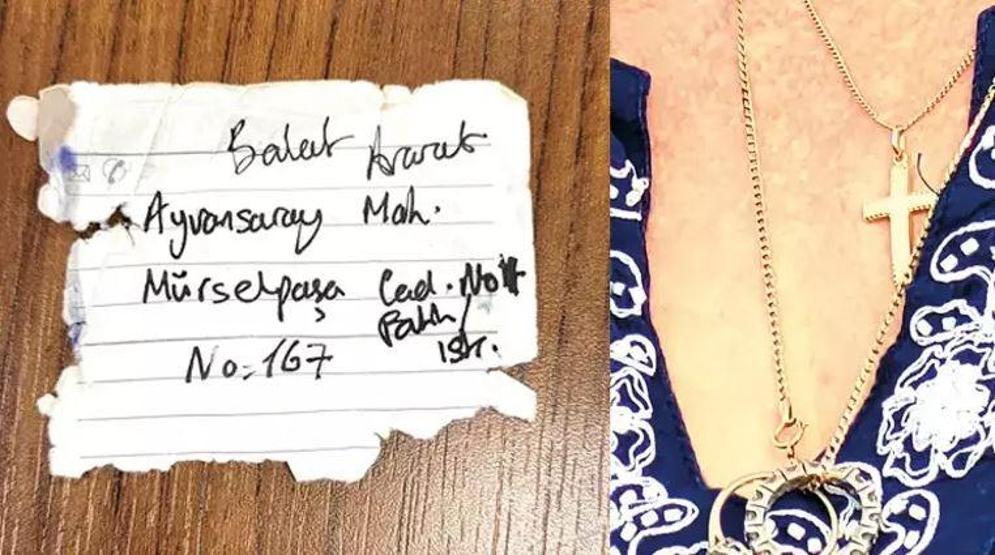 Balat Ararat
Ayvansaray Mah.
Mürselpaşa Cad. No
Fatih/
ist.
No: 167